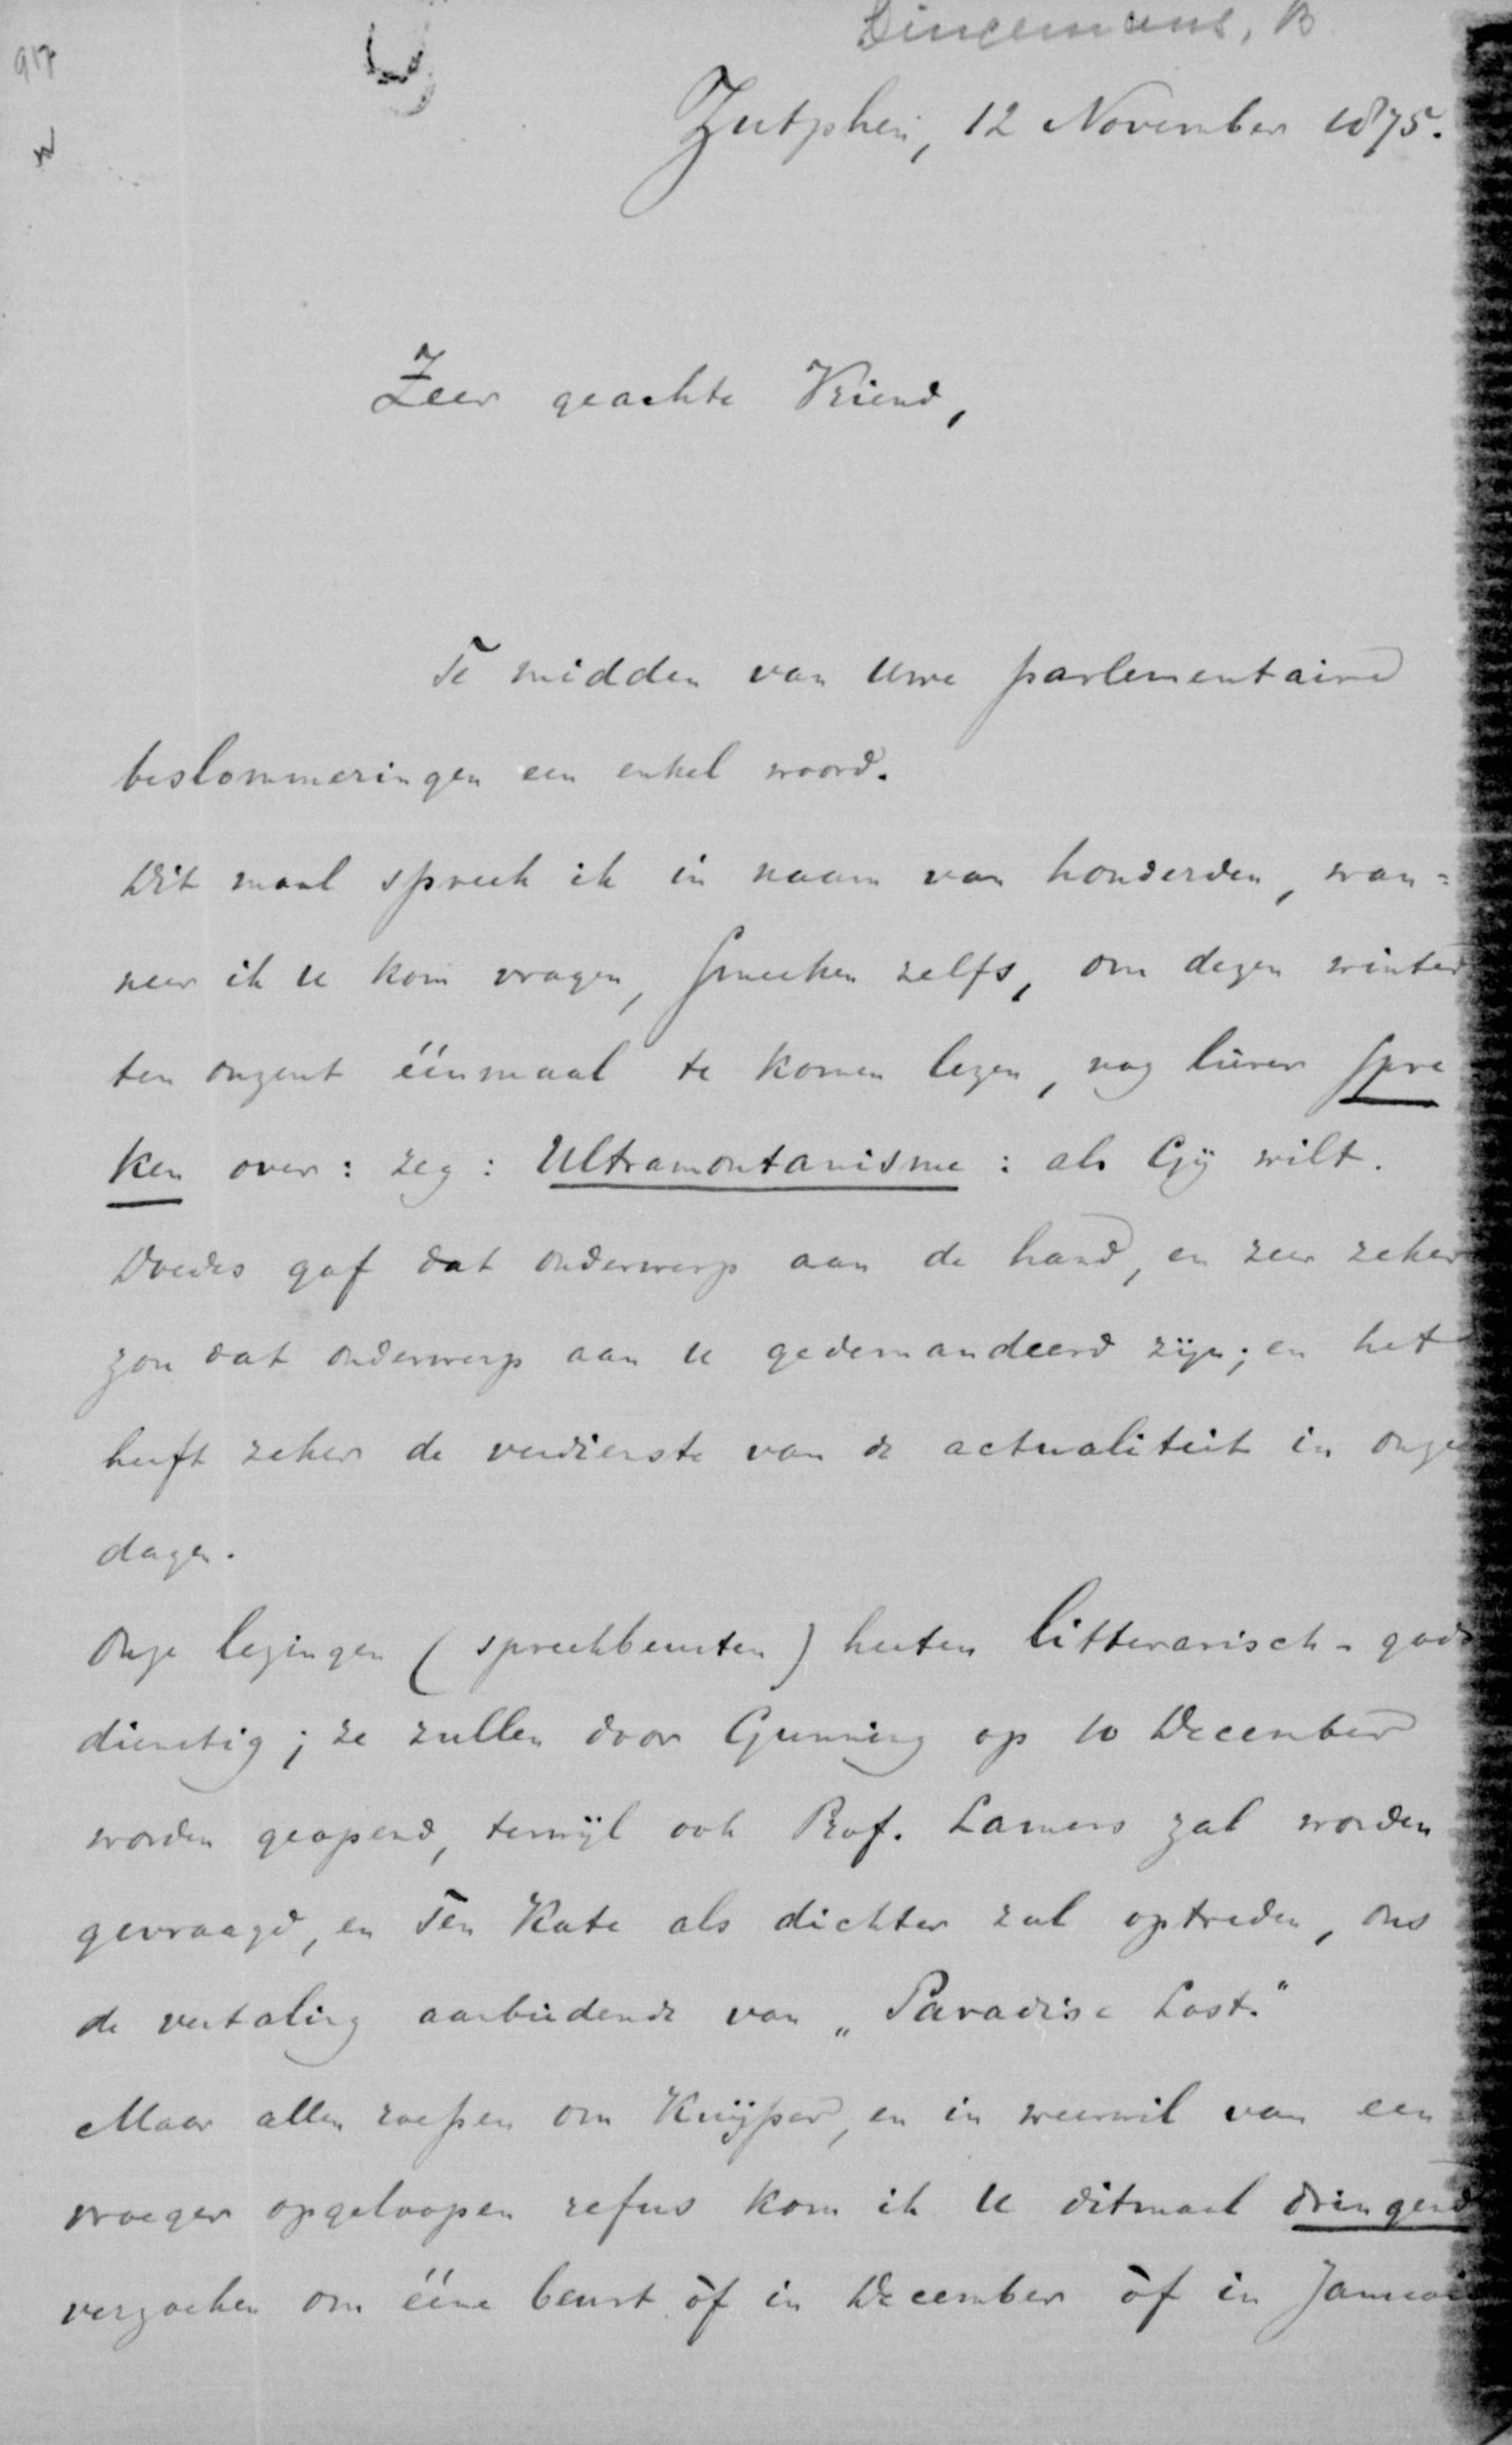 917
Dingemans, B
Zutphen, 12 November 1875.
Zeer geachte Vriend,
Te midden van Uwe parlementaire
beslommeringen een enkel woord.
Dit maal spreek ik in naam van honderden, wan=
neer ik U kom vragen, smeeken zelfs, om dezen winter
ten onzent éénmaal te komen lezen, nog liever spre
ken over: zeg: Ultramontanisme: als Gij wilt.
Doedes gaf dat onderwerp aan de hand, en zeer zeker
zou dat onderwerp aan U gedemandeerd zijn; en het
heeft zeker de verdienste van de actualiteit in onze
dagen.
Onze lezingen (spreekbeurten) heeten litterarisch-gods
dienstig; ze zullen door Gunning op 10 December
worden geopend, terwijl ook Prof. Lamers zal worden
gevraagd, en Ten Kate als dichter zal optreden, ons
de vertaling aanbiedende van „Paradise Lost."
Maar allen roepen om Kuijper, en in weerwil van een
vroeger opgeloopen refus kom ik U ditmaal dringend
verzoeken om ééne beurt òf in December òf in Januari